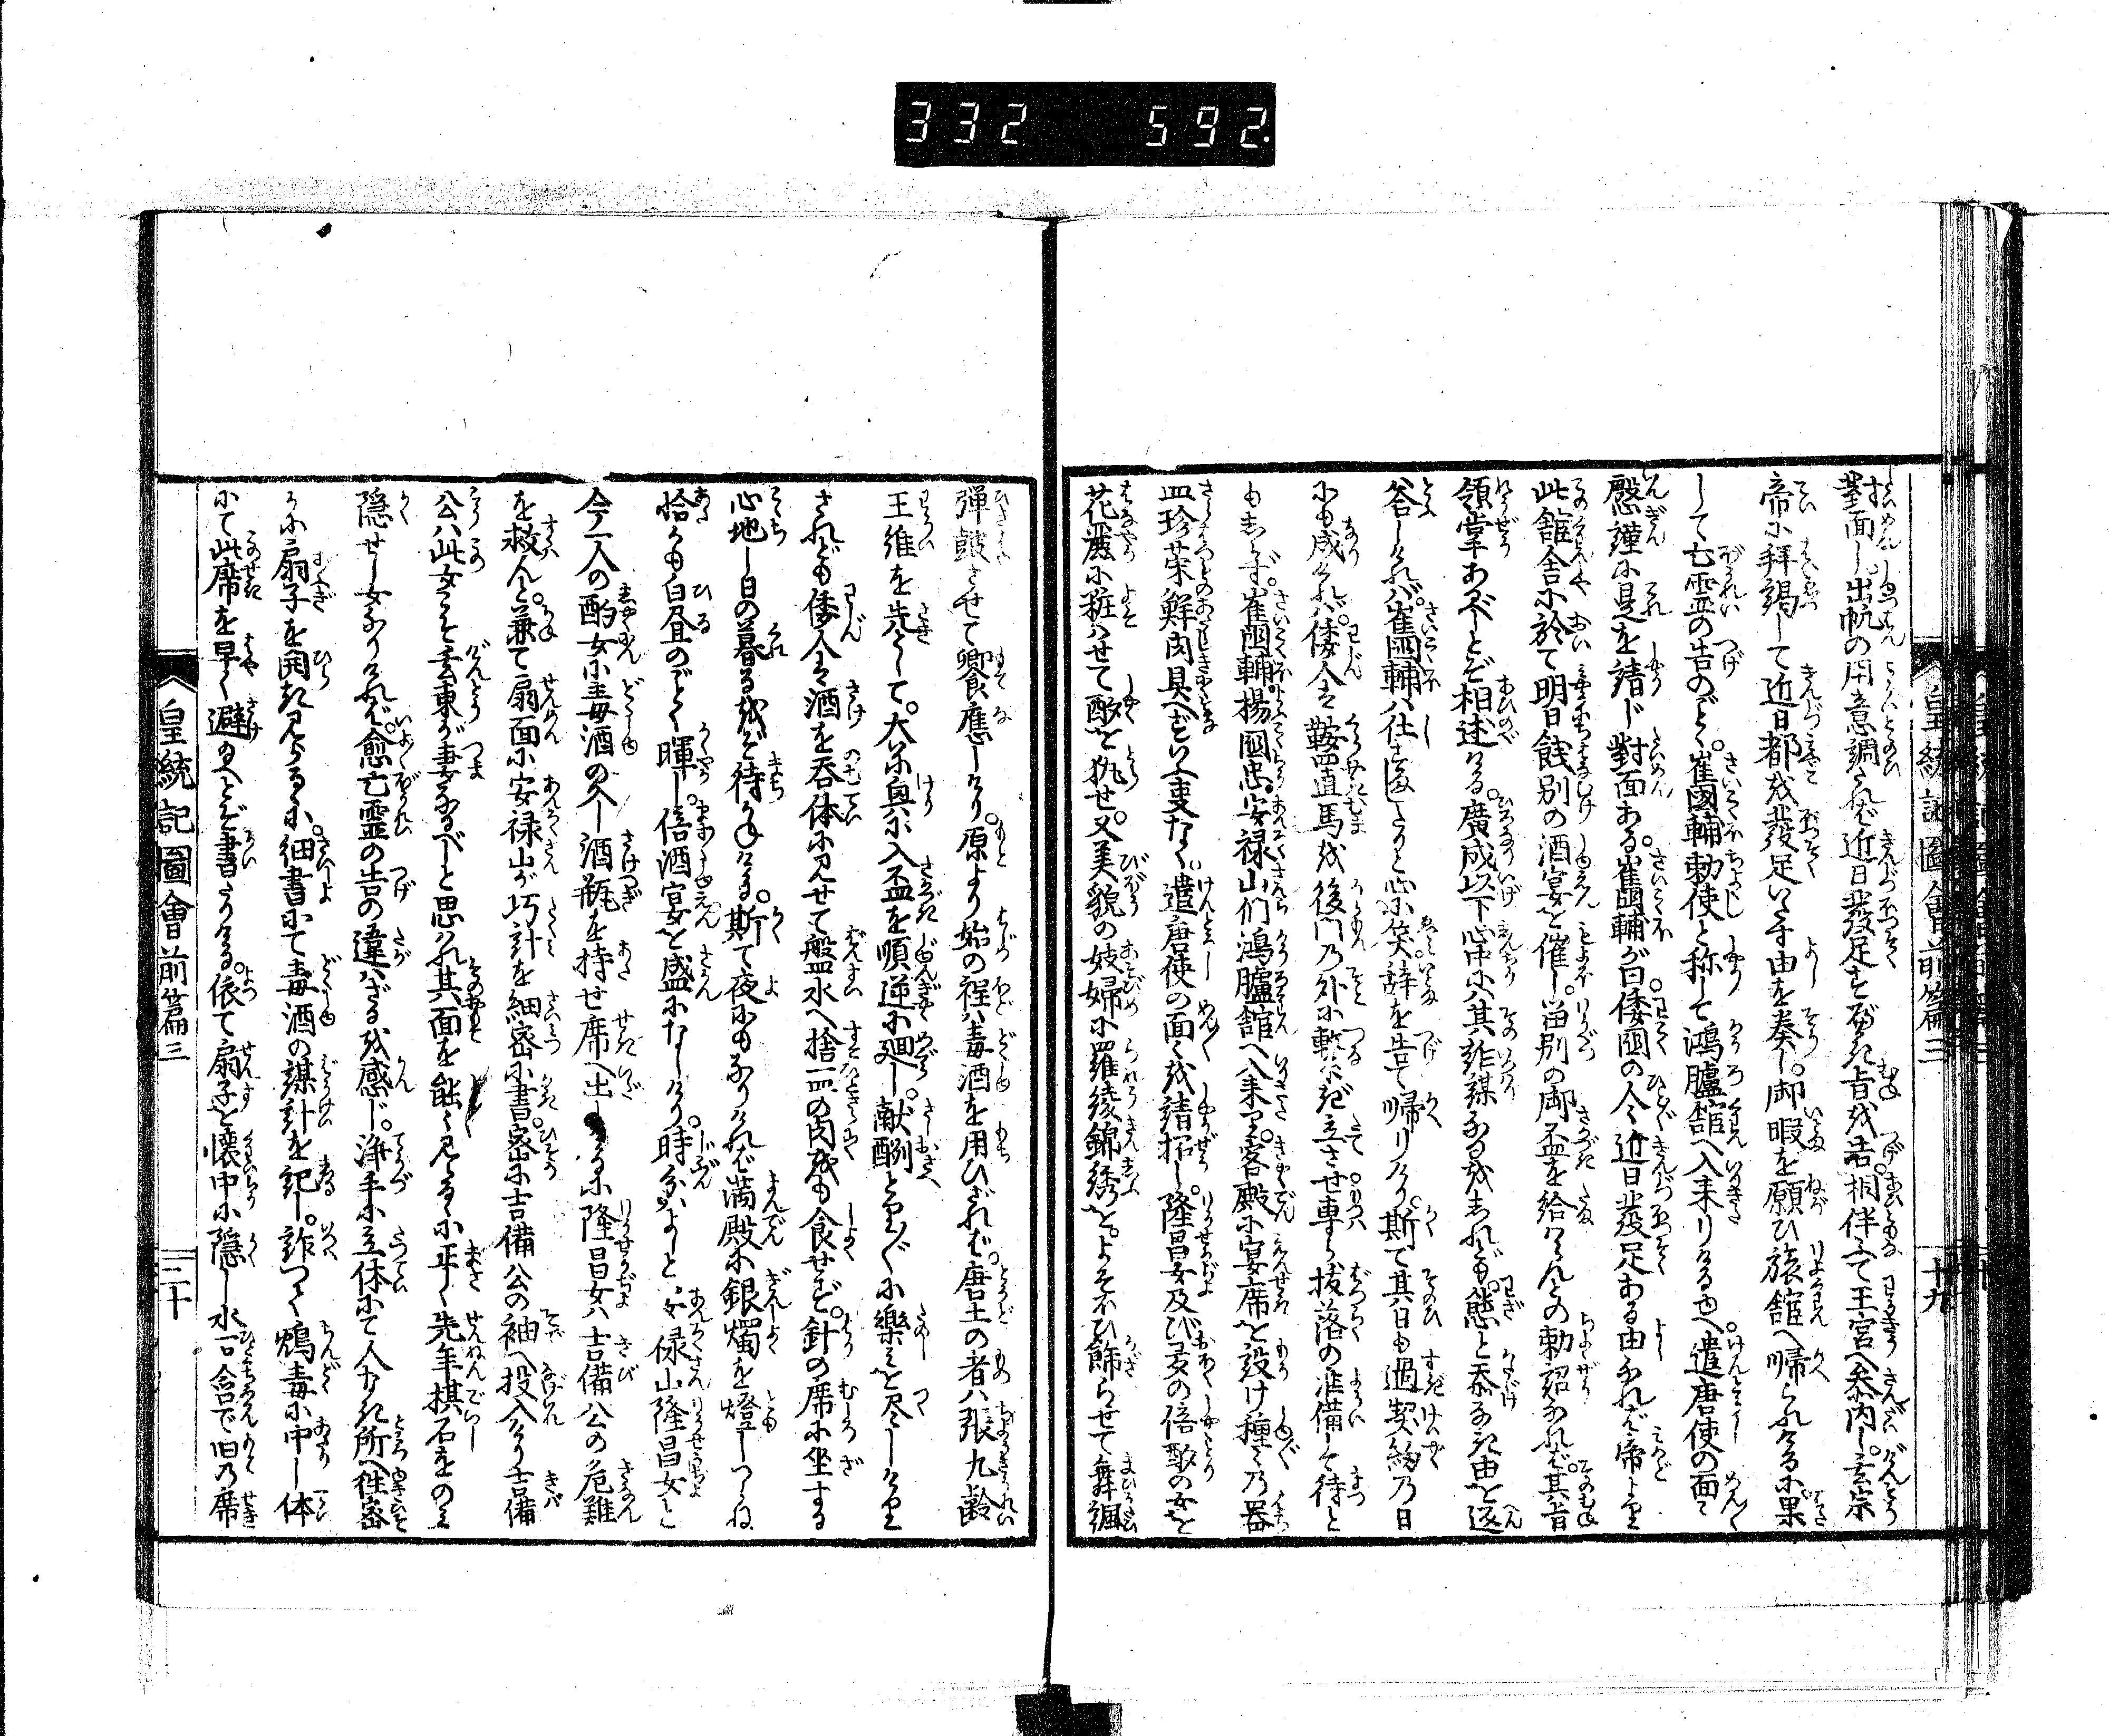 332 592
臺面し出帆の用意調たれば近日發足すべき旨を告相伴ふて王宮へ参内し玄宗
帝に拝謁して近日都を發足いたす由を奏し御暇を願ひ旅舘へ帰られけるに果
して亡霊の告のごとく崔國輔勅使と称して鴻臚舘へ入来りける也遣唐使の面々
慇謹に是を請じ對面ある崔國輔が曰倭國の人々近日發足ある由なれば帝より
此舘舎に於て明日餞別の酒宴を催し畄別の御盃を給はらんとの勅詔なれば其旨
領掌あるべしとぞ相述ける廣成以下心中には其詐謀なるを知れども態と忝なき由を返
答しければ崔國輔は仕すましたりと心に笑辞を告て帰りけり斯て其日も過契約の日
にも成ければ倭人は鞍置馬を後門の外に繋ぎ立させ専ら抜落の准備して待と
も知らず崔國輔楊國忠安禄山们鴻臚舘へ入来り客殿に宴席を設け種々の器
皿珍菜鮮肉具へずといふ事なく遣唐使の面々を請招し隆昌女及び夛の倍酌の女を
花麗に粧はせて酌を執せ又美貌の妓婦に羅綾錦綉をよそひ飾らせて舞諷
皇統記圖會前篇三 十九
弾皷させて饗應しけり原より始の程は毒酒を用ひざれば唐土の者は張九齢
王維を先として大に興に入盃を順逆に廻し献酬とりどりに樂みを尽しけり
されども倭人は酒を呑体に見せて盤水へ捨皿の肉をも食せず針の席に坐する
心地し日の暮るをぞ待かねける斯て夜にもなりければ満殿に銀燭を燈しつらね
恰かも白昼のごとく暉し倍酒宴を盛になしけり時分はよしと安禄山隆昌女と
今一人の酌女に毒酒の入し酒瓶を持せ席へ出しけるに隆昌女は吉備公の危難
を救んと兼て扇面に安禄山が巧計を細密に書密に吉備公の袖へ投入けり吉備
公は此女こそ玄東が妻なるべしと思はれ其面を能々見るに正しく先年棋石をのみ
隠せし女なりければ愈亡霊の告の違はざるを感じ浄手に立体にて人なき所へ往密
かに扇子を開き見らるゝに細書にて毒酒の謀計を記し詐つて鴆毒に中し体
にて此席を早く避給へとぞ書たりける依て扇子を懐中に隠し水一口含で旧の席
皇統記圖會前篇三 二十